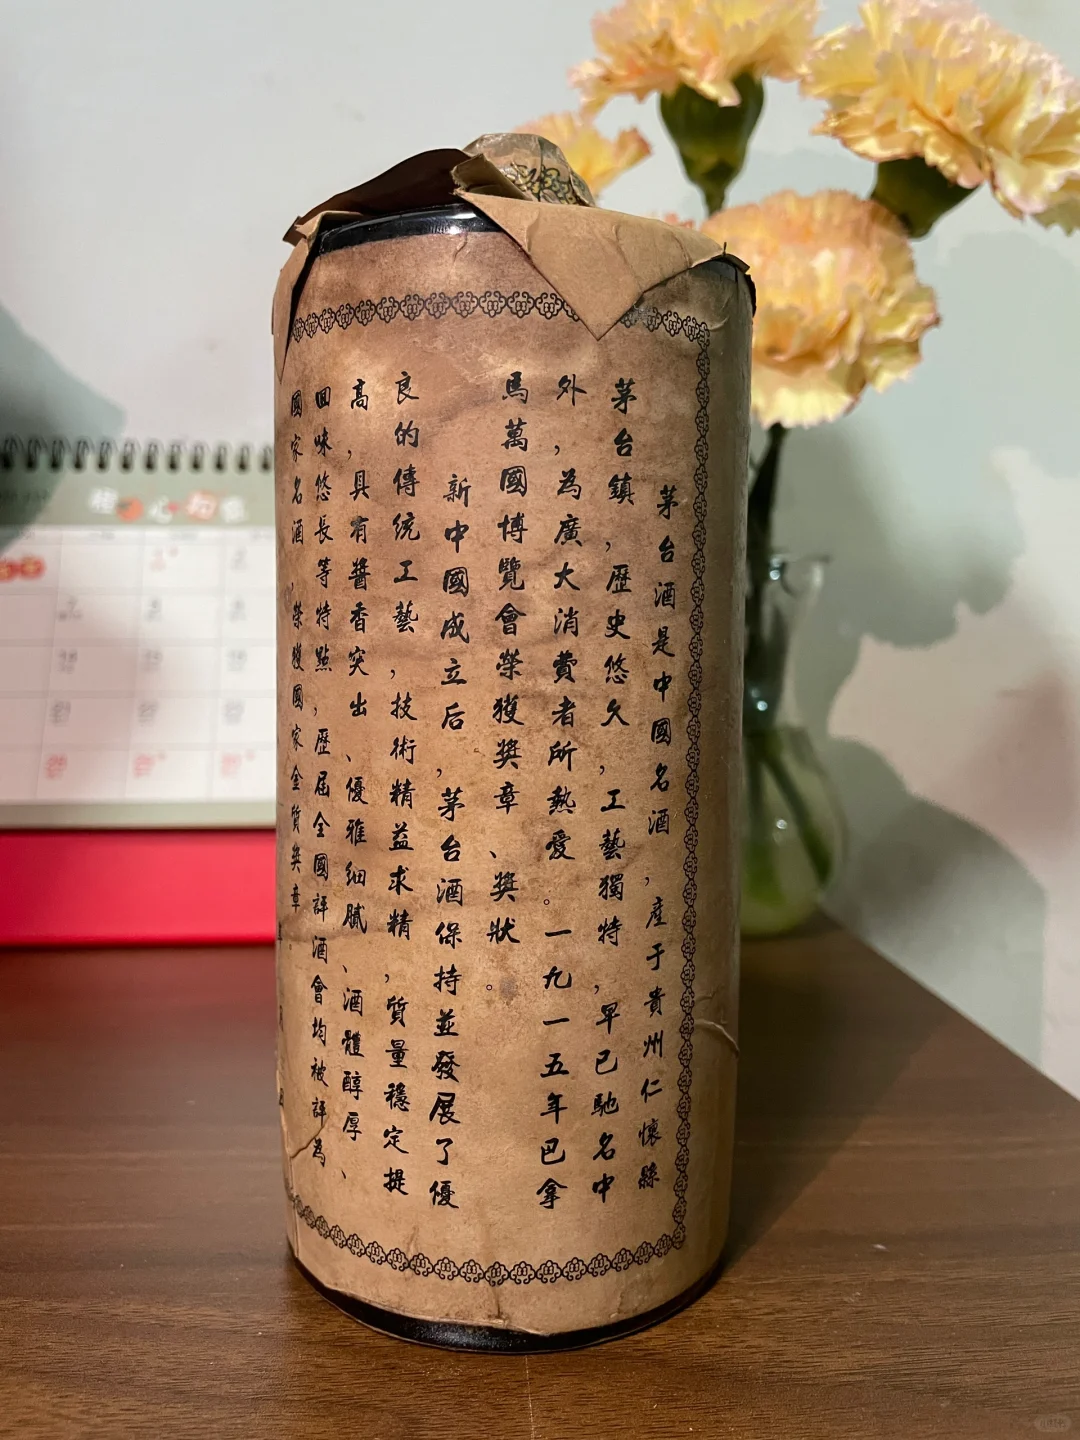 茅台酒是中國名酒，產于貴州仁懷縣
茅台鎮，歷史悠久，工藝獨特，早已馳名中
外，為廣大消費者所熱愛。一九一五年巴拿
馬萬國博覽會榮獲奬章、奬狀。
新中國成立后，茅台酒保持並發展了優
良的傳统工藝，技術精益求精，質量穩定提
高，具有醬香突出、優雅細膩、酒體醇厚、
回味悠長等特點，歷届全國評酒會均被評為
國家名酒，榮獲國家金質奬章